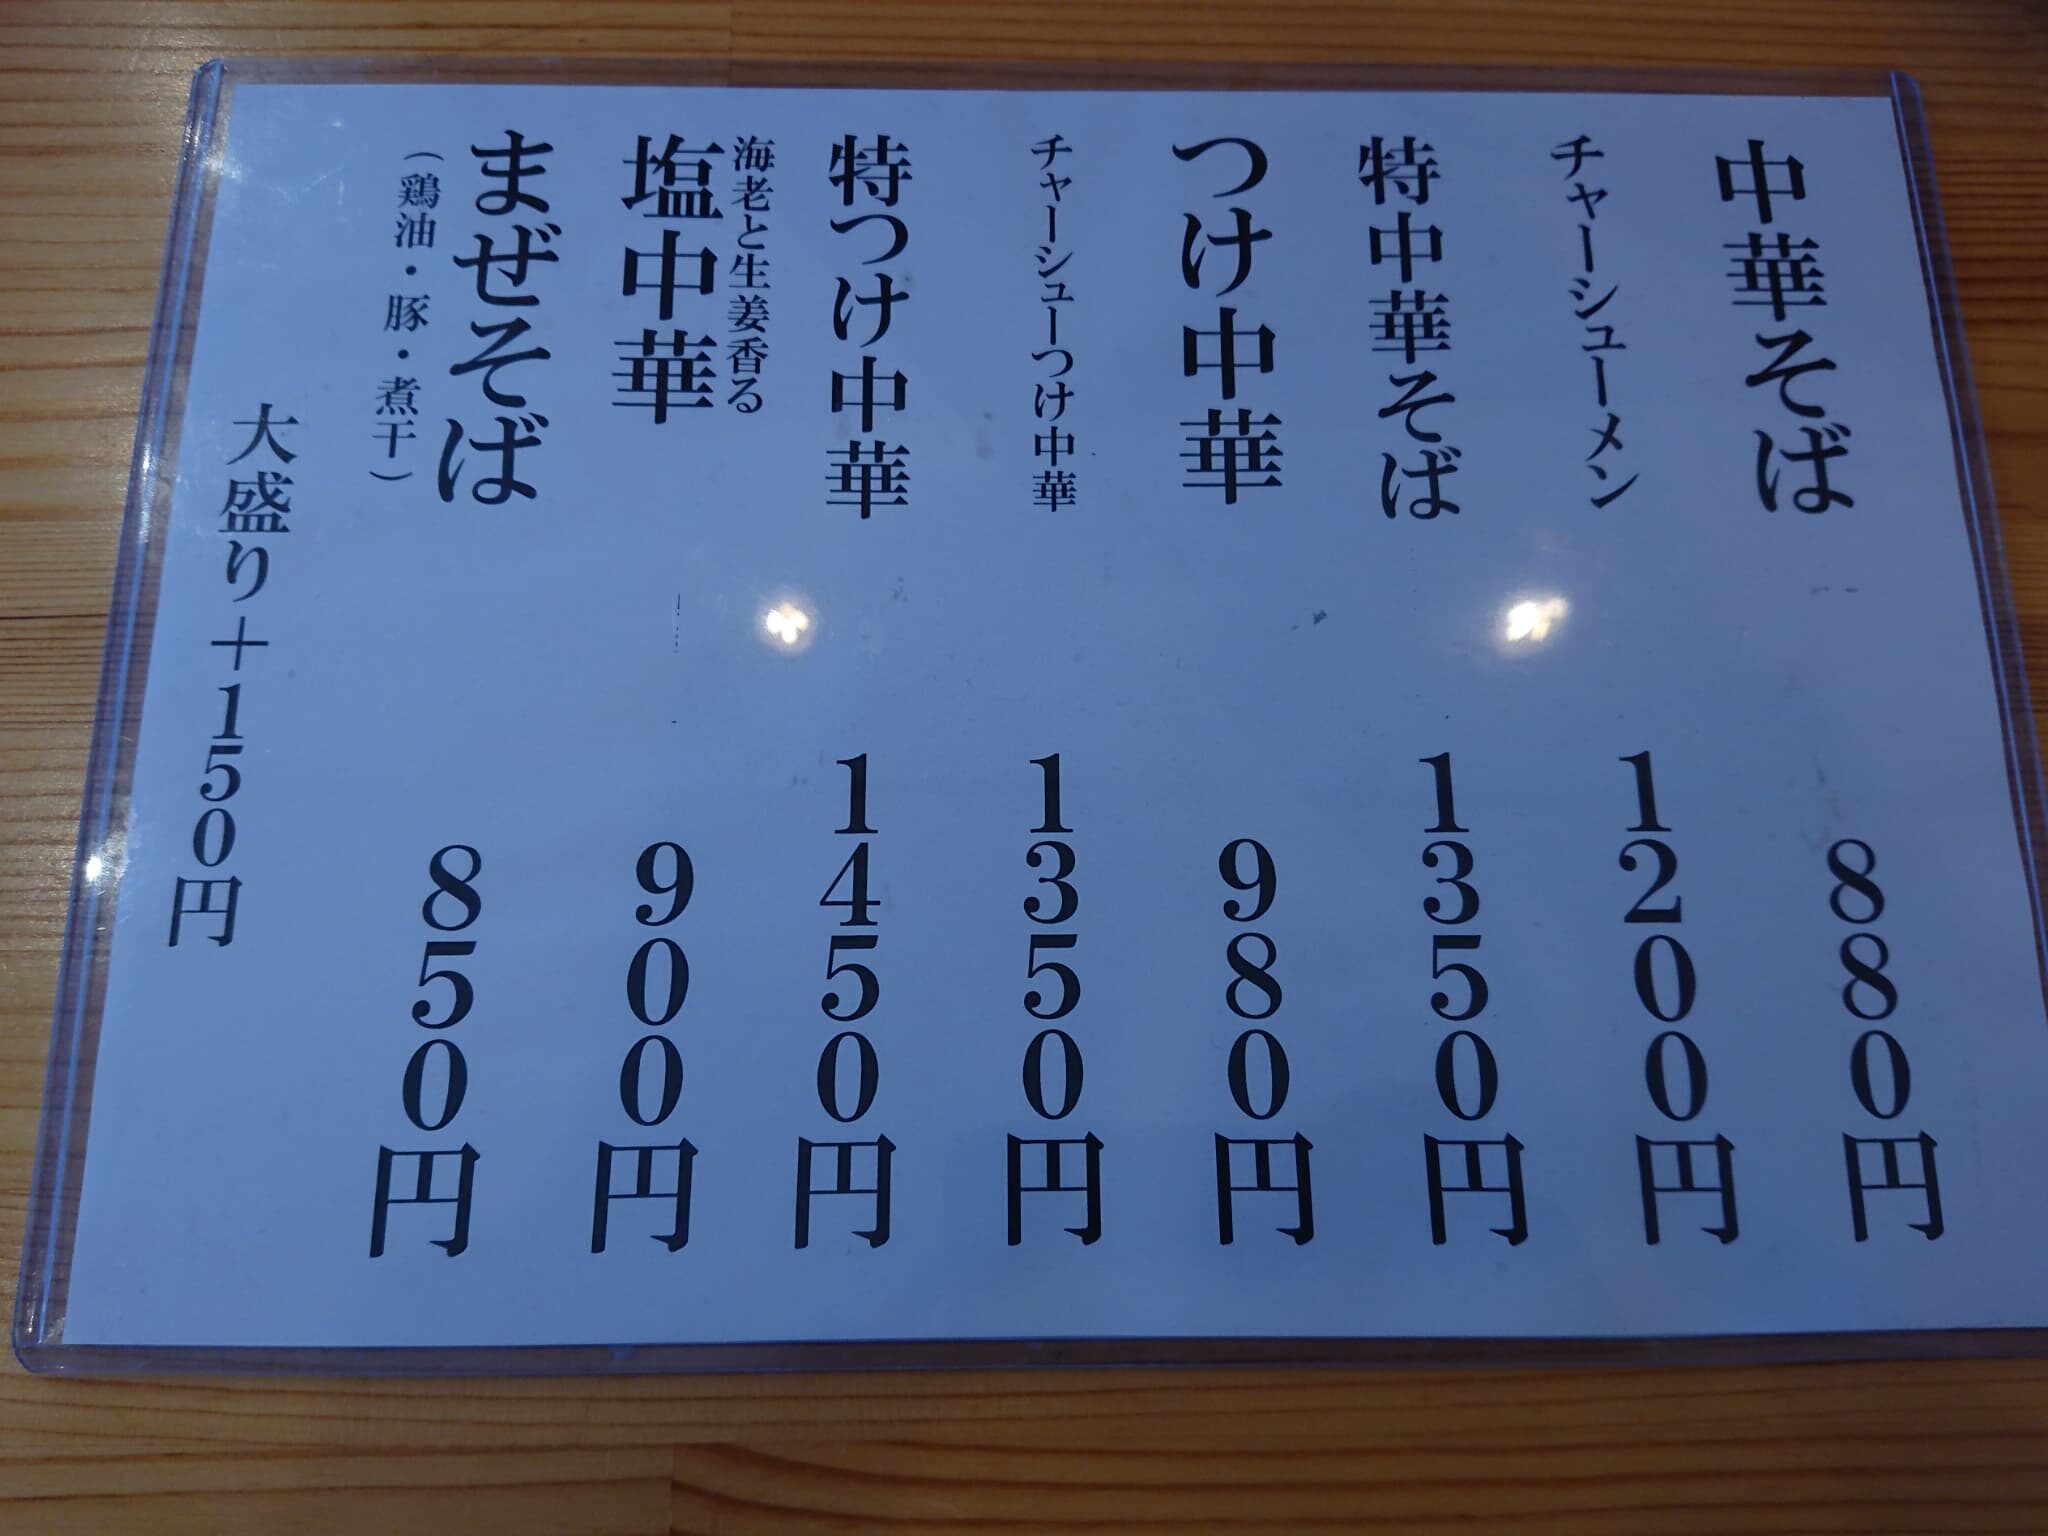 中華そば 880円
チャーシューメン 1200円
特中華そば 1350円
つけ中華 980円
チャーシューつけ中華 1350円
特つけ中華 1450円
海老と生姜香る
塩中華 900円
まぜそば 850円
（鶏油・豚・煮干）
大盛り＋150円